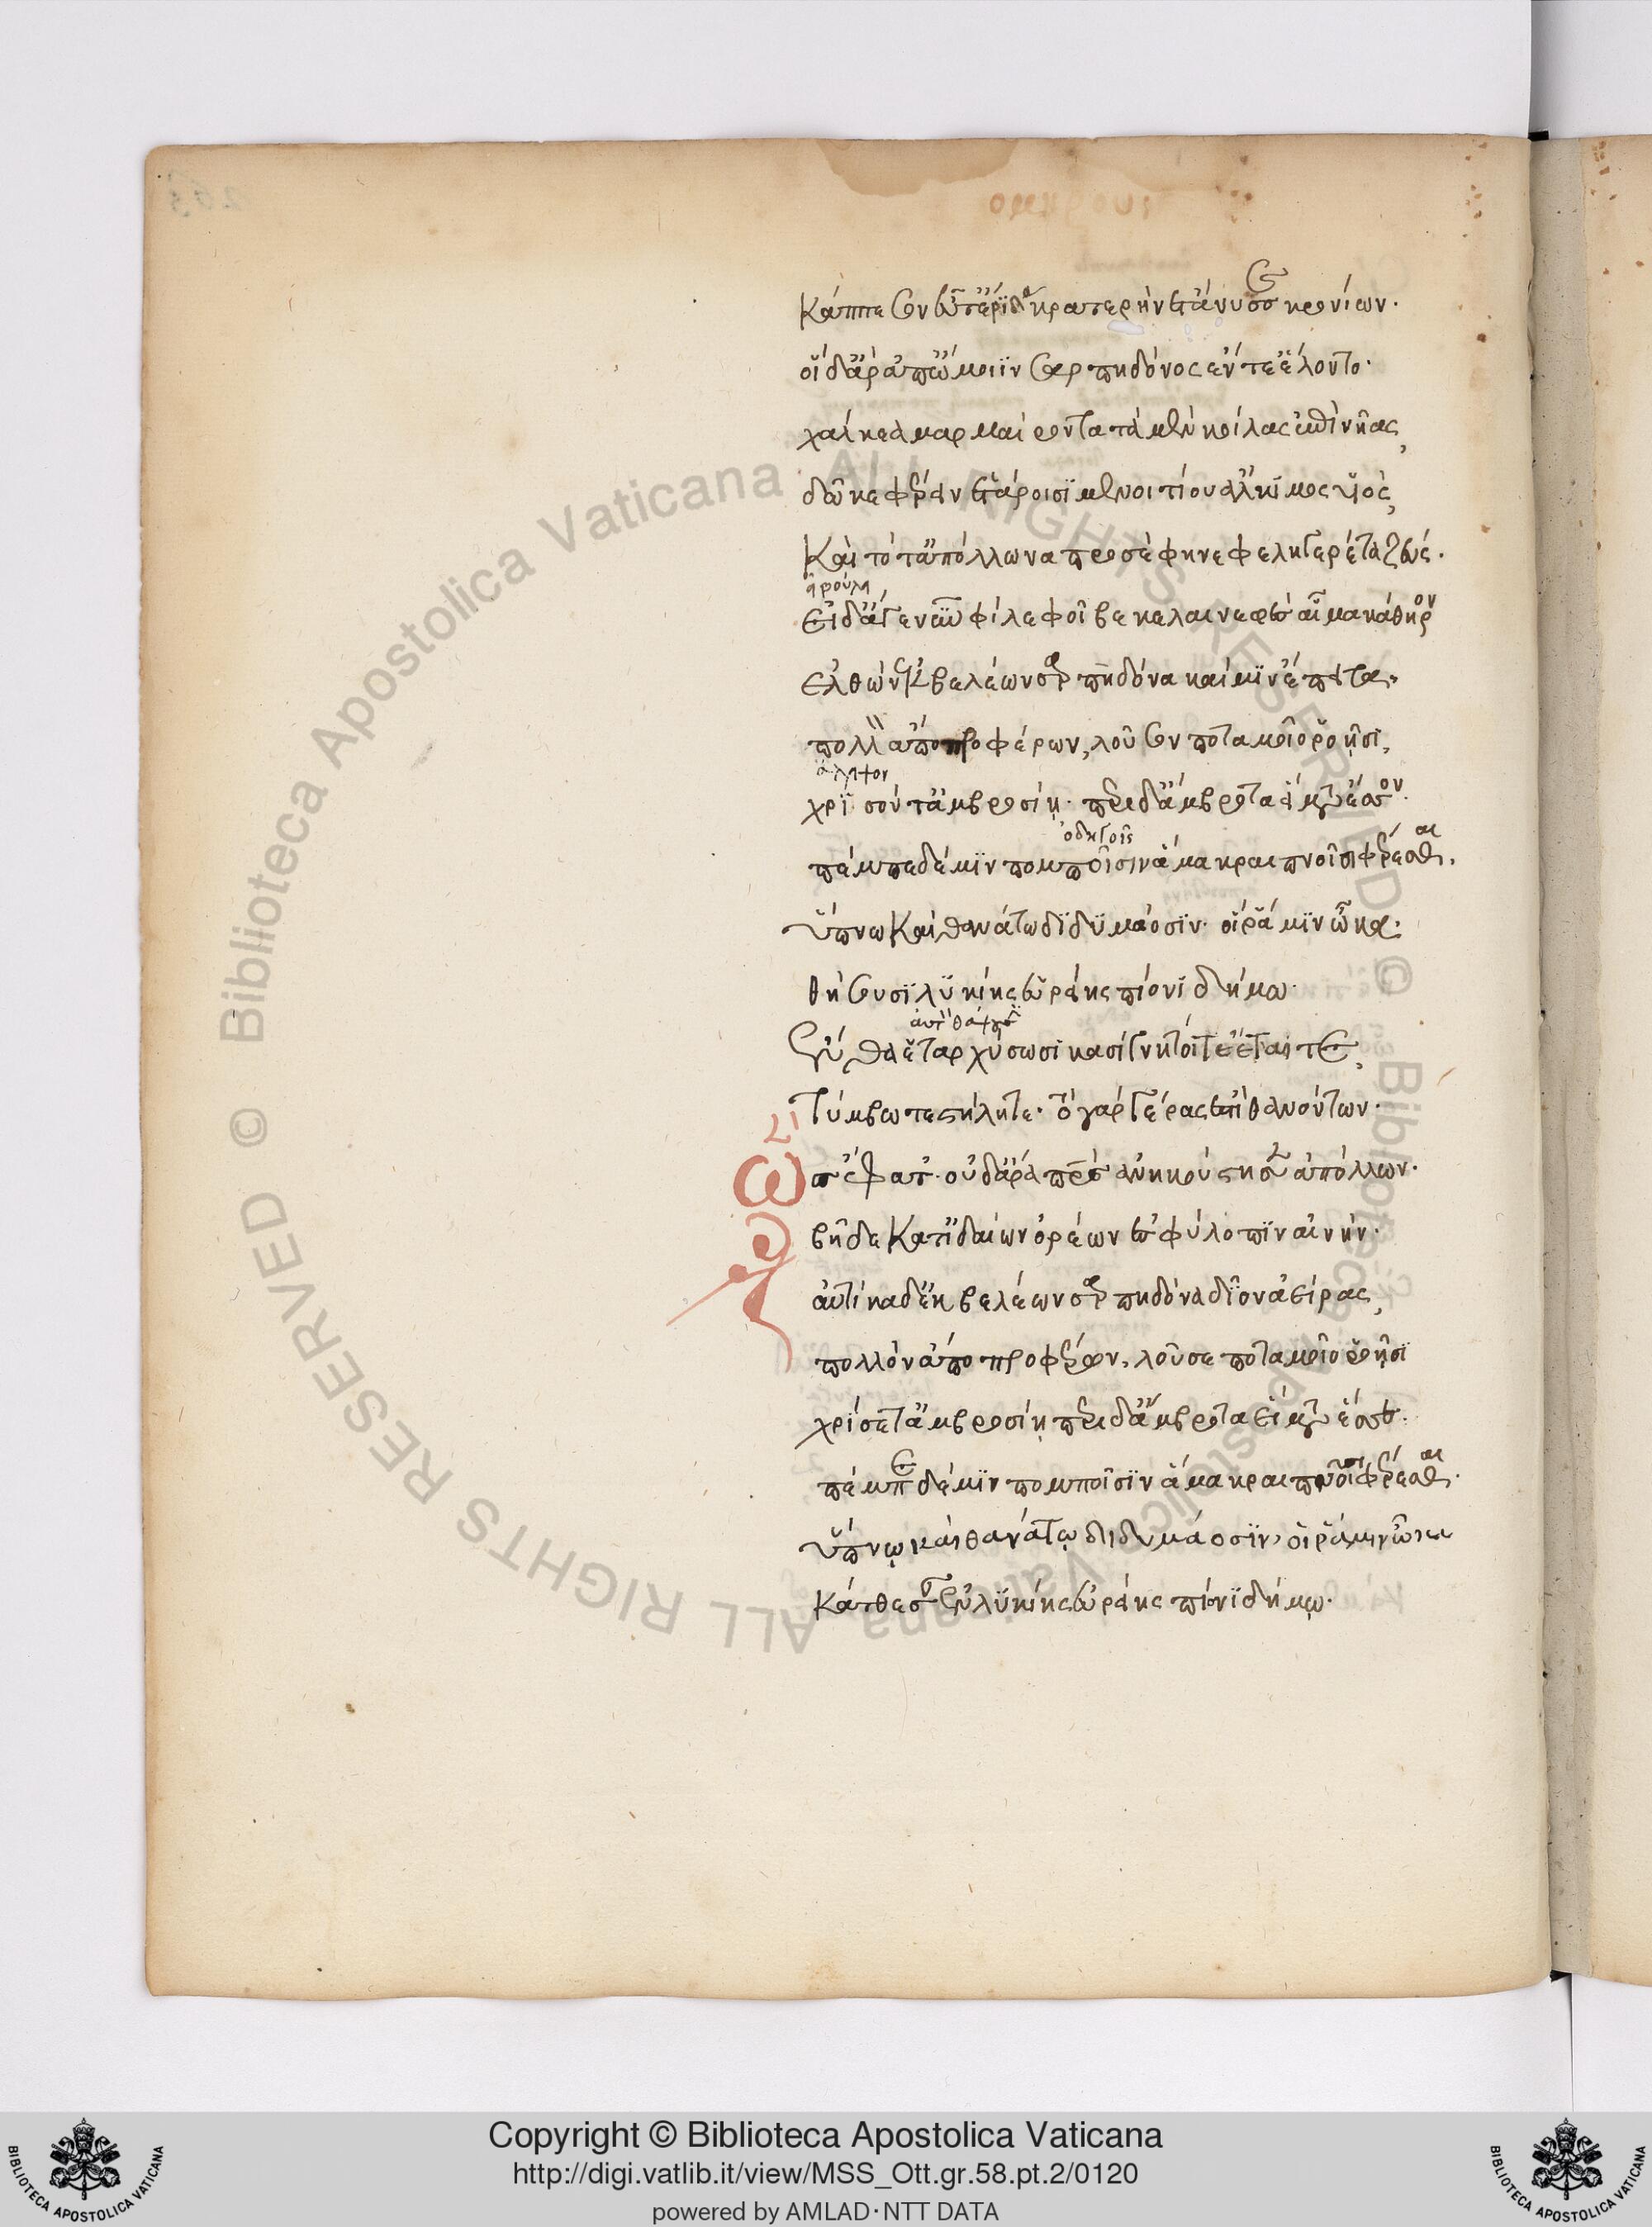 κάππεσεν ὥς τ' ἔριδα κρατερὴν ἐτάνυσσε κρονίων.
οἵ δ' ἄρ' ἀπ' ὤμοιϊν σαρπηδόνος ἔντε' ἕλοντο.
χάλκεα μαρμαίροντα τὰ μὲν κοίλας ἐπὶ νῆας,
δῶκε φέρειν ἑτάροισϊ μενοιτίου ἄλκιμος υἱός,
καὶ τότ' ἀπόλλωνα προσέφη νεφεληγερέτα ζεύς.
εἰ δ' ἄγε νῦν φίλε φοῖβε κελαινεφὲς αἷμα κάθηρον
ἐλθὼν ἐκ βελέων σαρπηδόνα καί μϊν ἔπειτα
πολλὰ ἀποπροφέρων, λοῦσον ποταμοῖο ῥοῇσι,
ἄληψον
χρῖσόν τ' ἀμβροσίῃ. περὶ δ' ἄμβροτα εἵματα ἕσσον.
ὁδηγοῖς
πέμπε δέ μϊν πομποῖσιν ἅμα κραιπνοῖσι φέρεσθαι.
ὕπνω καὶ θανάτω δϊδυμάοσϊν. οἵ ῥά μϊν ὦκα.
θήσουσϊ λυκίης εὐρείης πίονϊ δήμω.
ἔνθα ἑ ταρχύσωσϊ κασίγνητοί τε ἔται τε,
τύμβω τε στήλη τε. τὸ γὰρ γέρας ἐστὶ θανόντων.
ὣς ἔφατ'. οὐδ' ἄρα πατρὸς ἀνηκούστησεν ἀπόλλων.
βῆ δὲ κατ' ἰδαίων ὀρέων ἐς φύλοπϊν αἰνήν.
αὐτίκα δ' ἐκ βελέων σαρπηδόνα δῖον ἀείρας,
πολλὸν ἀποπροφέρων, λοῦσε ποταμοῖο ῥοῇσϊ
χρῖσέν τ' ἀμβροσίῃ περὶ δ' ἄμβροτα εἵματα ἕσσε.
πέμπε δέ μϊν πομποῖσϊν ἅμα κραιπνοῖσι φέρεσθαι.
ὕπνῳ καὶ θανάτῳ διδυμάοσϊν, οἵ ῥά μιν ὦκα
κάτθεσαν ἐν λυκίης εὐρείης πίονϊ δήμῳ.
Copyright © Biblioteca Apostolica Vaticana
http://digi.vatlib.it/view/MSS_Ott.gr.58.pt.2/0120
powered by AMLAD·NTT DATA